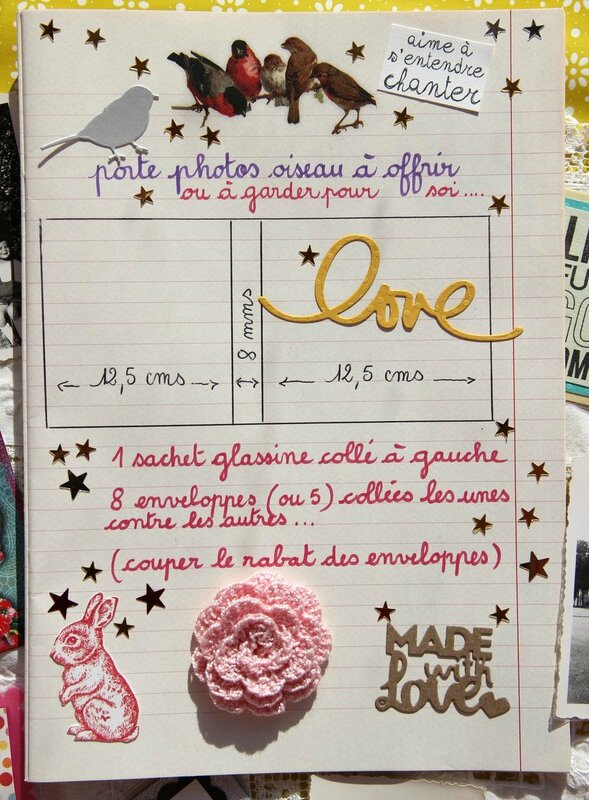 aime à
s'entendre
chanter
porte photos oiseau à offrir
ou à garder pour soi ....
love
8 mms
← 12,5 cms →
← 12,5 cms →
1 sachet glassine collé à gauche
8 enveloppes (ou 5) collées les unes
contre les autres ...
(couper le rabat des enveloppes)
MADE
with
love